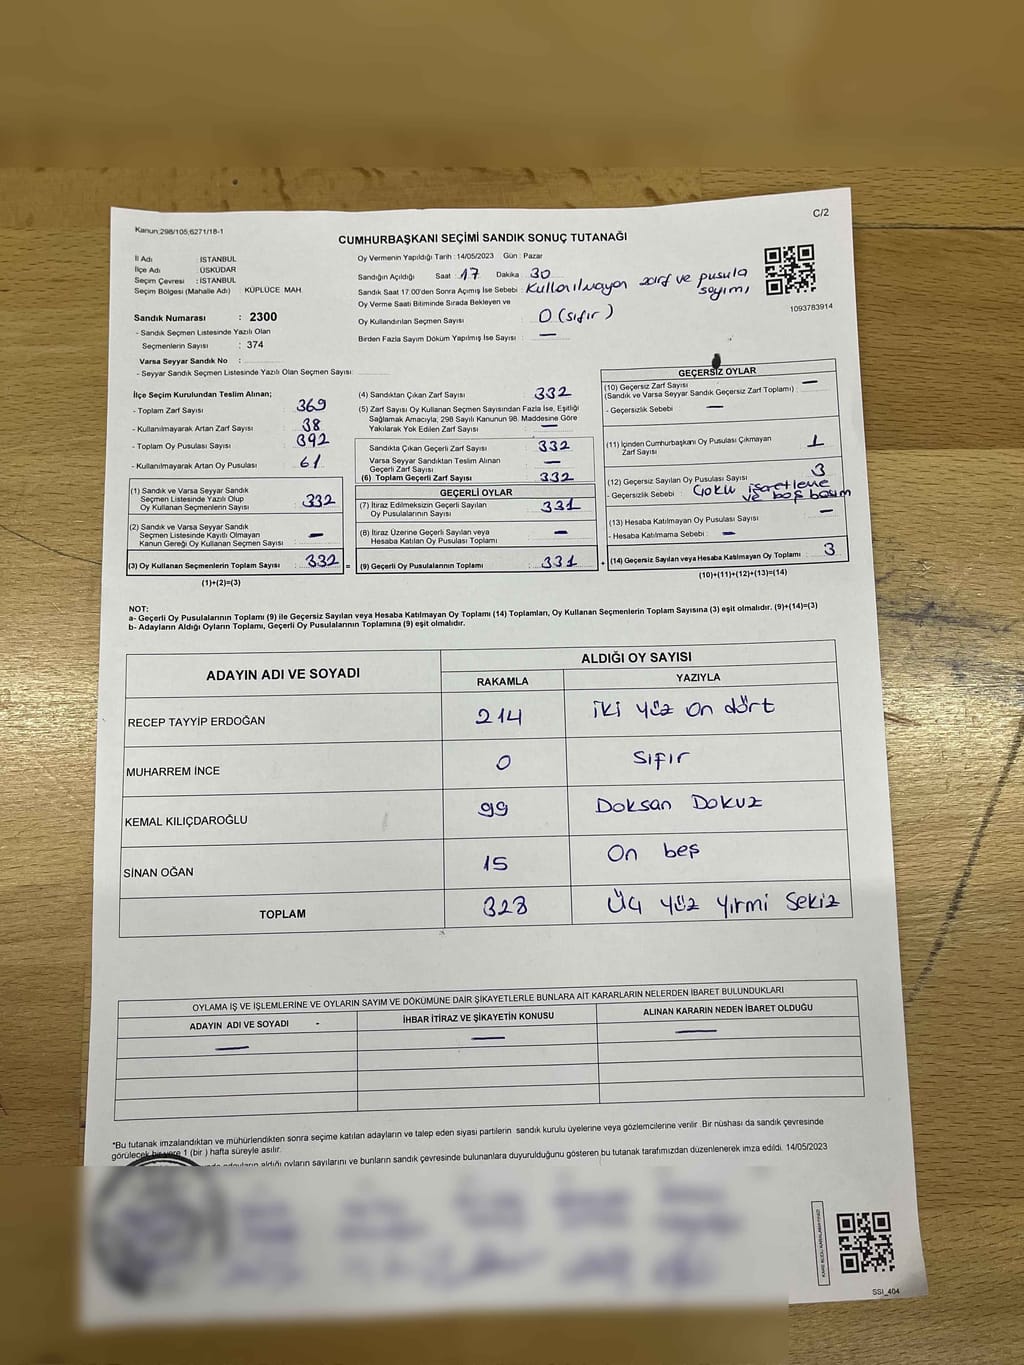 C/2
Kanun:298/105,6271/18-1
CUMHURBAŞKANI SEÇİMİ SANDIK SONUÇ TUTANAĞI
İl Adı : İSTANBUL
İlçe Adı : ÜSKÜDAR
Seçim Çevresi : İSTANBUL
Seçim Bölgesi (Mahalle Adı) : KÜPLÜCE MAH.
Sandık Numarası : 2300
- Sandık Seçmen Listesinde Yazılı Olan
Seçmenlerin Sayısı : 374
Varsa Seyyar Sandık No :
- Seyyar Sandık Seçmen Listesinde Yazılı Olan Seçmen Sayısı:
Oy Vermenin Yapıldığı Tarih : 14/05/2023 Gün : Pazar
Sandığın Açıldığı Saat : 17 Dakika : 30
Sandık Saat 17.00'den Sonra Açımış İse Sebebi : Kullanılmayan zarf ve pusula sayımı
Oy Verme Saati Bitiminde Sırada Bekleyen ve
Oy Kullandırılan Seçmen Sayısı : 0 (sıfır)
Birden Fazla Sayım Döküm Yapılmış İse Sayısı : —
1093783914
İlçe Seçim Kurulundan Teslim Alınan;
- Toplam Zarf Sayısı : 369
- Kullanılmayarak Artan Zarf Sayısı : 38
- Toplam Oy Pusulası Sayısı : 392
- Kullanılmayarak Artan Oy Pusulası : 61
(1) Sandık ve Varsa Seyyar Sandık
Seçmen Listesinde Yazılı Olup
Oy Kullanan Seçmenlerin Sayısı : 332
(2) Sandık ve Varsa Seyyar Sandık
Seçmen Listesinde Kayıtlı Olmayan
Kanun Gereği Oy Kullanan Seçmen Sayısı : —
(3) Oy Kullanan Seçmenlerin Toplam Sayısı : 332 =
(1)+(2)=(3)
(4) Sandıktan Çıkan Zarf Sayısı : 332
(5) Zarf Sayısı Oy Kullanan Seçmen Sayısından Fazla İse, Eşitliği
Sağlamak Amacıyla, 298 Sayılı Kanunun 98. Maddesine Göre
Yakılarak Yok Edilen Zarf Sayısı : —
Sandıkta Çıkan Geçerli Zarf Sayısı : 332
Varsa Seyyar Sandıktan Teslim Alınan
Geçerli Zarf Sayısı : —
(6) Toplam Geçerli Zarf Sayısı : 332
GEÇERLİ OYLAR
(7) İtiraz Edilmeksizin Geçerli Sayılan
Oy Pusulalarının Sayısı : 331
(8) İtiraz Üzerine Geçerli Sayılan veya
Hesaba Katılan Oy Pusulası Toplamı : —
(9) Geçerli Oy Pusulalarının Toplamı : 331 +
GEÇERSİZ OYLAR
(10) Geçersiz Zarf Sayısı : —
(Sandık ve Varsa Seyyar Sandık Geçersiz Zarf Toplamı)
- Geçersizlik Sebebi : —
(11) İçinden Cumhurbaşkanı Oy Pusulası Çıkmayan
Zarf Sayısı : 1
(12) Geçersiz Sayılan Oy Pusulası Sayısı : 3
- Geçersizlik Sebebi : Çoklu işaretleme
ve boş basım
(13) Hesaba Katılmayan Oy Pusulası Sayısı : —
- Hesaba Katılmama Sebebi : —
(14) Geçersiz Sayılan veya Hesaba Katılmayan Oy Toplamı : 3
(10)+(11)+(12)+(13)=(14)
NOT:
a- Geçerli Oy Pusulalarının Toplamı (9) ile Geçersiz Sayılan veya Hesaba Katılmayan Oy Toplamı (14) Toplamları, Oy Kullanan Seçmenlerin Toplam Sayısına (3) eşit olmalıdır. (9)+(14)=(3)
b- Adayların Aldığı Oyların Toplamı, Geçerli Oy Pusulalarının Toplamına (9) eşit olmalıdır.
ADAYIN ADI VE SOYADI ALDIĞI OY SAYISI
RAKAMLA YAZIYLA
RECEP TAYYİP ERDOĞAN 214 iki yüz on dört
MUHARREM İNCE 0 Sıfır
KEMAL KILIÇDAROĞLU 99 Doksan Dokuz
SİNAN OĞAN 15 On beş
TOPLAM 328 Üç yüz yirmi sekiz
OYLAMA İŞ VE İŞLEMLERİNE VE OYLARIN SAYIM VE DÖKÜMÜNE DAİR ŞİKAYETLERLE BUNLARA AİT KARARLARIN NELERDEN İBARET BULUNDUKLARI
ADAYIN ADI VE SOYADI - İHBAR İTİRAZ VE ŞİKAYETİN KONUSU ALINAN KARARIN NEDEN İBARET OLDUĞU
— — —
*Bu tutanak imzalandıktan ve mühürlendikten sonra seçime katılan adayların ve talep eden siyasi partilerin sandık kurulu üyelerine veya gözlemcilerine verilir. Bir nüshası da sandık çevresinde
görülecek bir yere 1 (bir ) hafta süreyle asılır.
aldığı oyların sayılarını ve bunların sandık çevresinde bulunanlara duyurulduğunu gösteren bu tutanak tarafımızdan düzenlenerek imza edildi. 14/05/2023
SSI_404